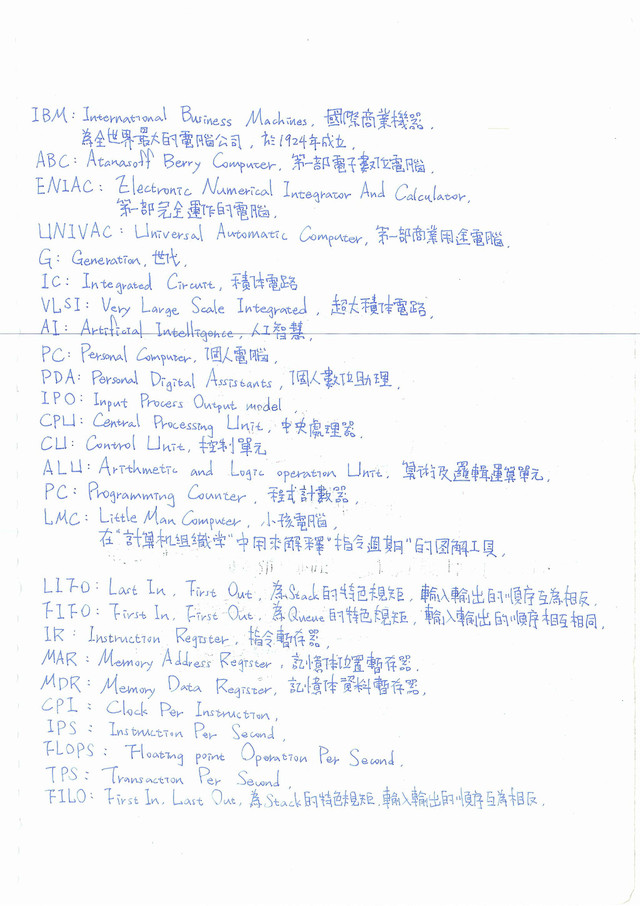 IBM: International Business Machines, 國際商業機器,
為全世界最大的電腦公司, 於1924年成立,
ABC: Atanasoff Berry Computer, 第一部電子數位電腦,
ENIAC: Electronic Numerical Integrator And Calculator,
第一部完全運作的電腦,
UNIVAC: Universal Automatic Computer, 第一部商業用途電腦,
G: Generation, 世代,
IC: Integrated Circuit, 積体電路
VLSI: Very Large Scale Integrated, 超大積体電路,
AI: Artificial Intelligence, 人工智慧,
PC: Personal Computer, 個人電腦,
PDA: Personal Digital Assistants, 個人數位助理,
IPO: Input Process Output model,
CPU: Central Processing Unit, 中央處理器,
CU: Control Unit, 控制單元
ALU: Arithmetic and Logic operation Unit, 算術及邏輯運算單元,
PC: Programming Counter, 程式計數器,
LMC: Little Man Computer, 小孩電腦,
在"計算机組織学"中用來解釋"指令週期"的図解工具,
LIFO: Last In, First Out, 為Stack的特色規矩, 輸入輸出的順序互為相反,
FIFO: First In, First Out, 為Queue的特色規矩, 輸入輸出的順序相互相同,
IR: Instruction Register, 指令暫存器,
MAR: Memory Address Register, 記憶体位置暫存器,
MDR: Memory Data Register, 記憶体資料暫存器,
CPI: Clock Per Instruction,
IPS: Instruction Per Second,
FLOPS: Floating point Operation Per Second,
TPS: Transaction Per Second,
FILO: First In, Last Out, 為Stack的特色規矩, 輸入輸出的順序互為相反,